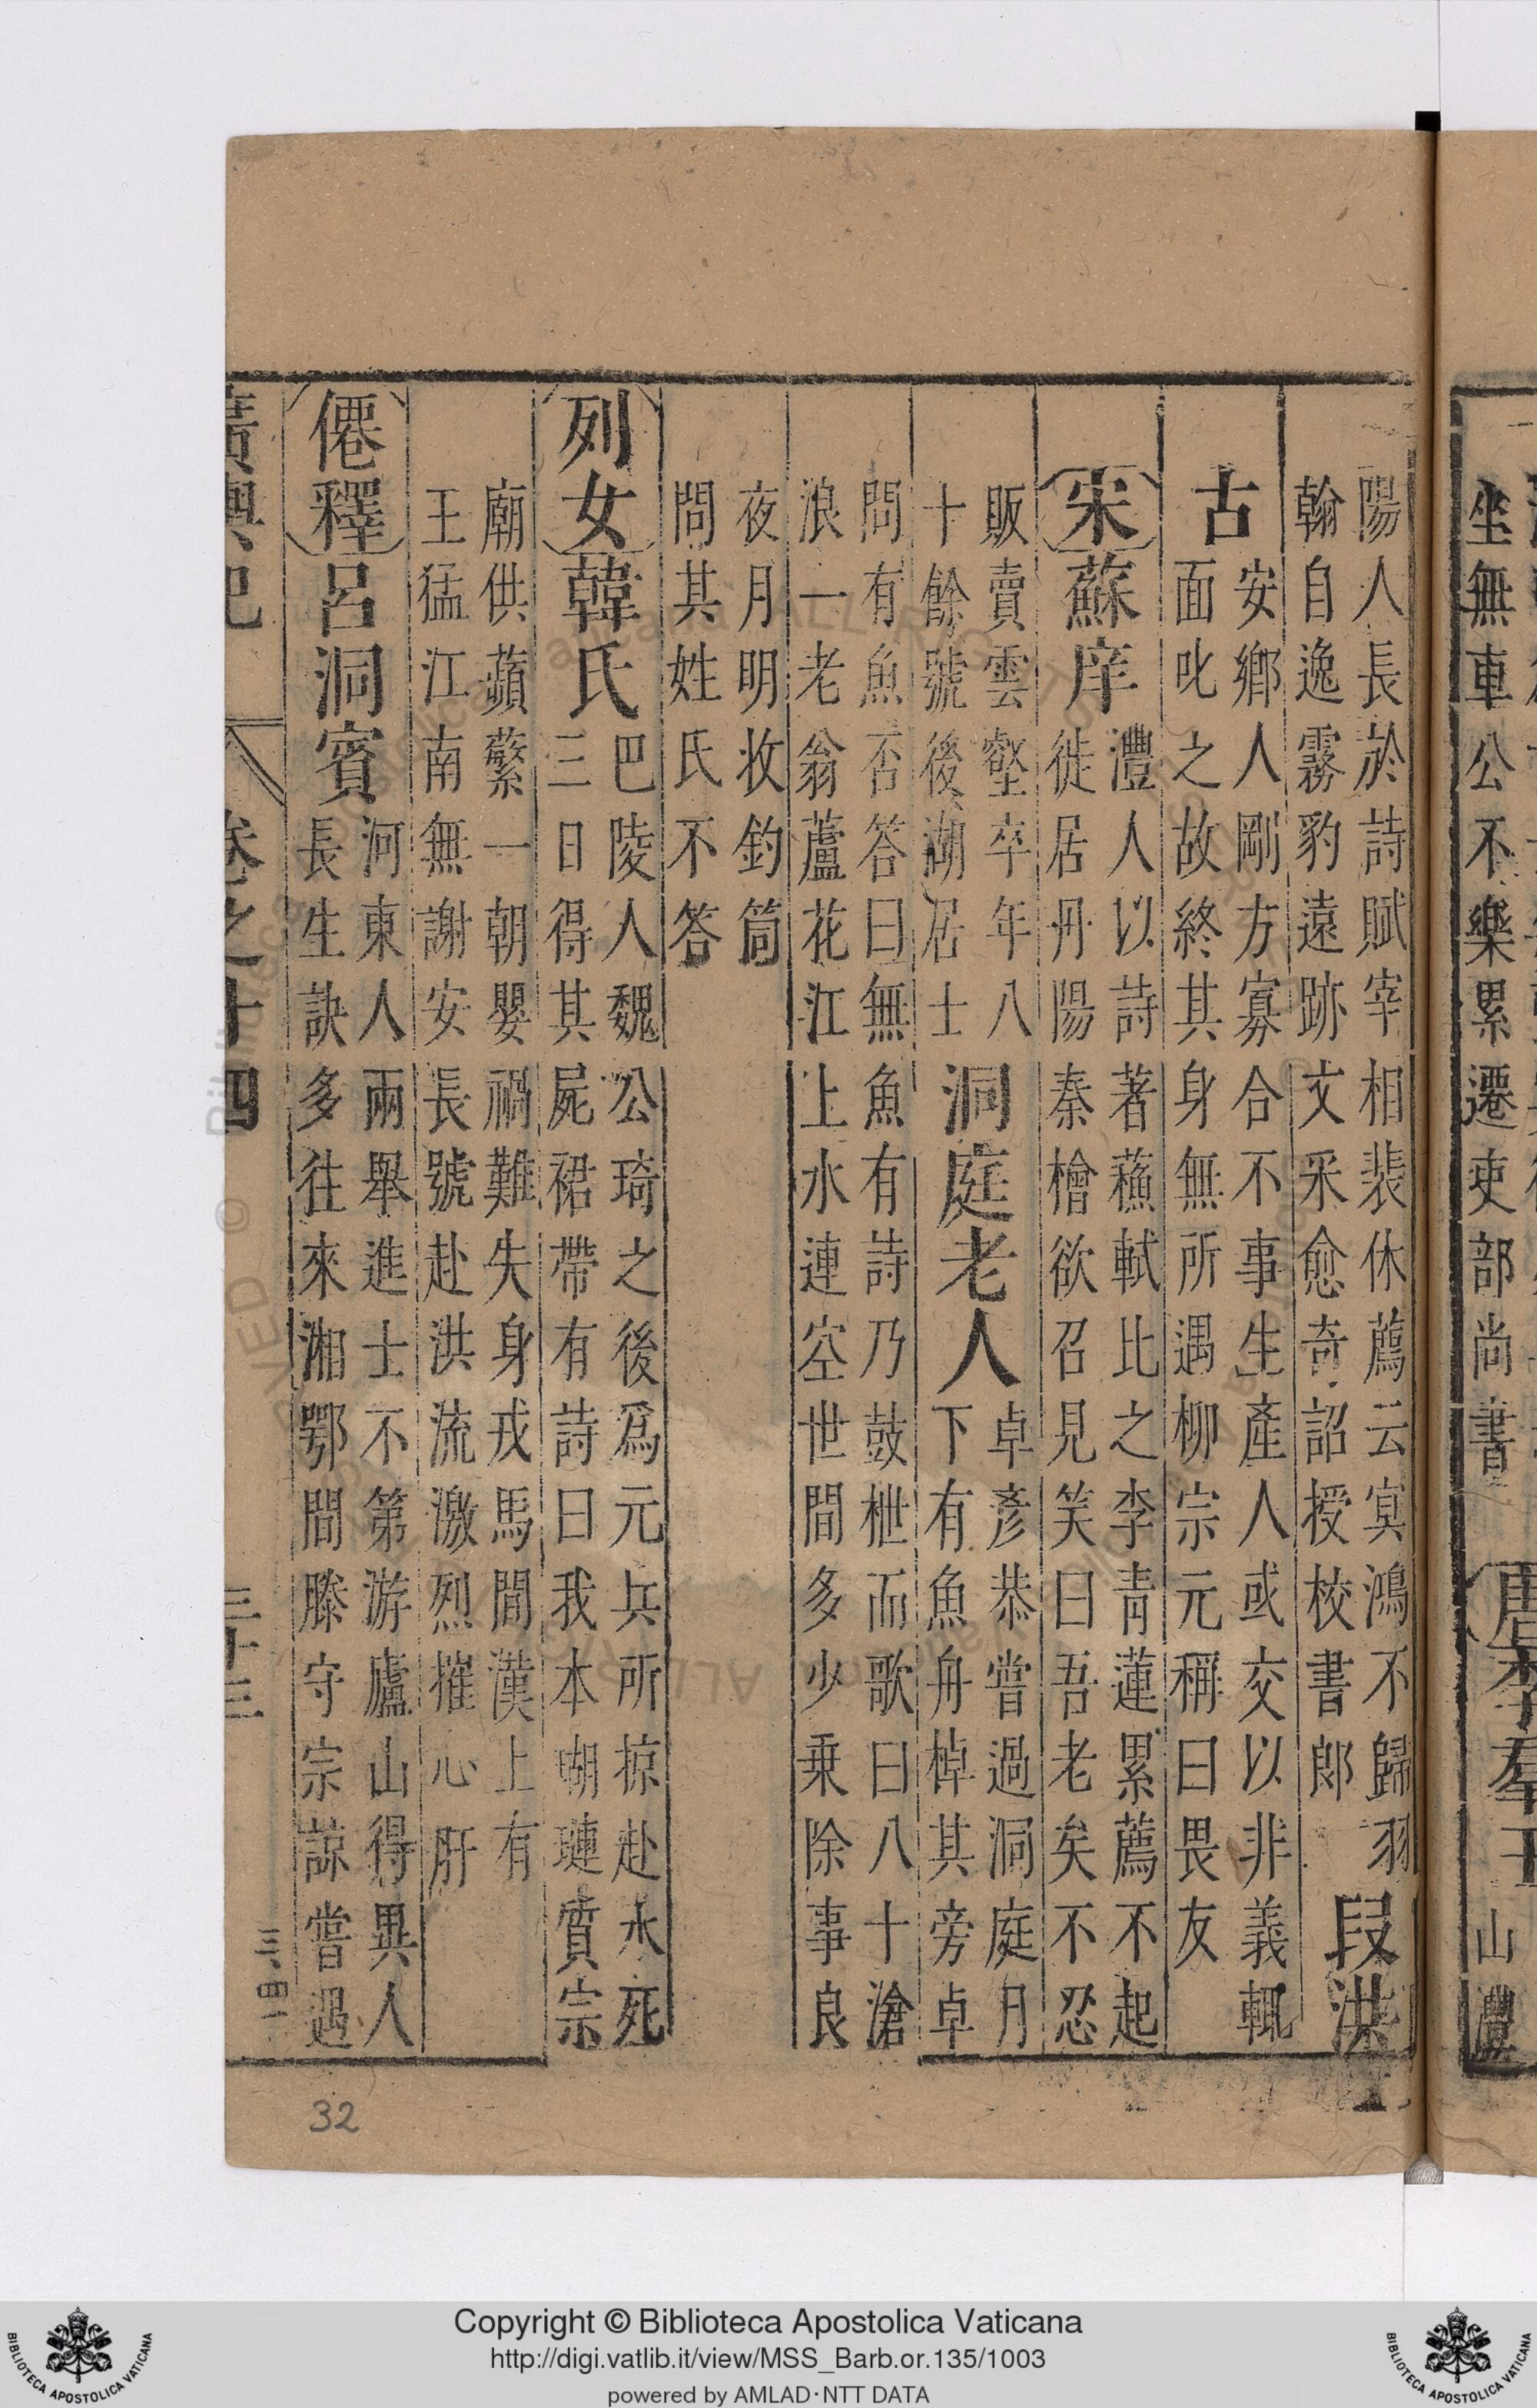 坐無車公不樂累遷吏部尚書
山
澧
陽人長於詩賦宰相裴休薦云寘鴻不歸羽
翰自逸霧豹遠跡文采愈奇詔授校書郎
段洪
古
安鄉人剛方寡合不事生產人或交以非義輒
面叱之故終其身無所遇柳宗元稱曰畏友
宋蘇庠
澧人以詩著蘓軾比之李青蓮累薦不起
徙居丹陽秦檜欲召見笑曰吾老矣不忍
販賣雲壑卒年八
十餘號後湖居士
洞庭老人
卓彥恭嘗過洞庭月
下有魚舟棹其旁卓
問有魚否答曰無魚有詩乃鼓枻而歌曰八十滄
浪一老翁蘆花江上水連空世間多少乗除事良
夜月明收釣筒
問其姓氏不答
列女韓氏
巴陵人魏公琦之後爲元兵所掠赴水死
三日得其屍裙帶有詩曰我本瑚璉質宗
廟供蘋蘩一朝嬰禍難失身戎馬間漢上有
王猛江南無謝安長號赴洪流激烈摧心肝
僊釋呂洞賓
河東人兩舉進士不第游廬山得異人
長生訣多往來湘鄂間滕守宗諒嘗遇
廣輿記
卷之十四
三十三
32
Copyright © Biblioteca Apostolica Vaticana
http://digi.vatlib.it/view/MSS_Barb.or.135/1003
powered by AMLAD·NTT DATA
BIBLIOTECA APOSTOLICA VATICANA
BIBLIOTECA APOSTOLICA VATICANA